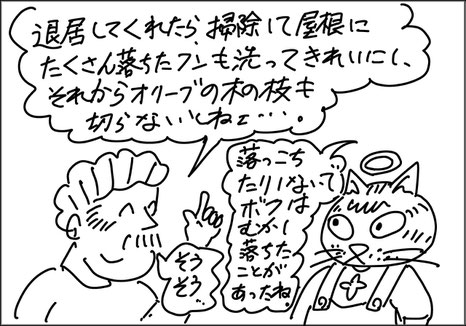 退居してくれたら、掃除して屋根に
たくさん落ちたフンも洗ってきれいにし、
それからオリーブの木の枝も
切らないとねェ…。
落っこち
たりしないで
ボクは
むかし
落ちた
ことが
あったね。
そう
そう‥